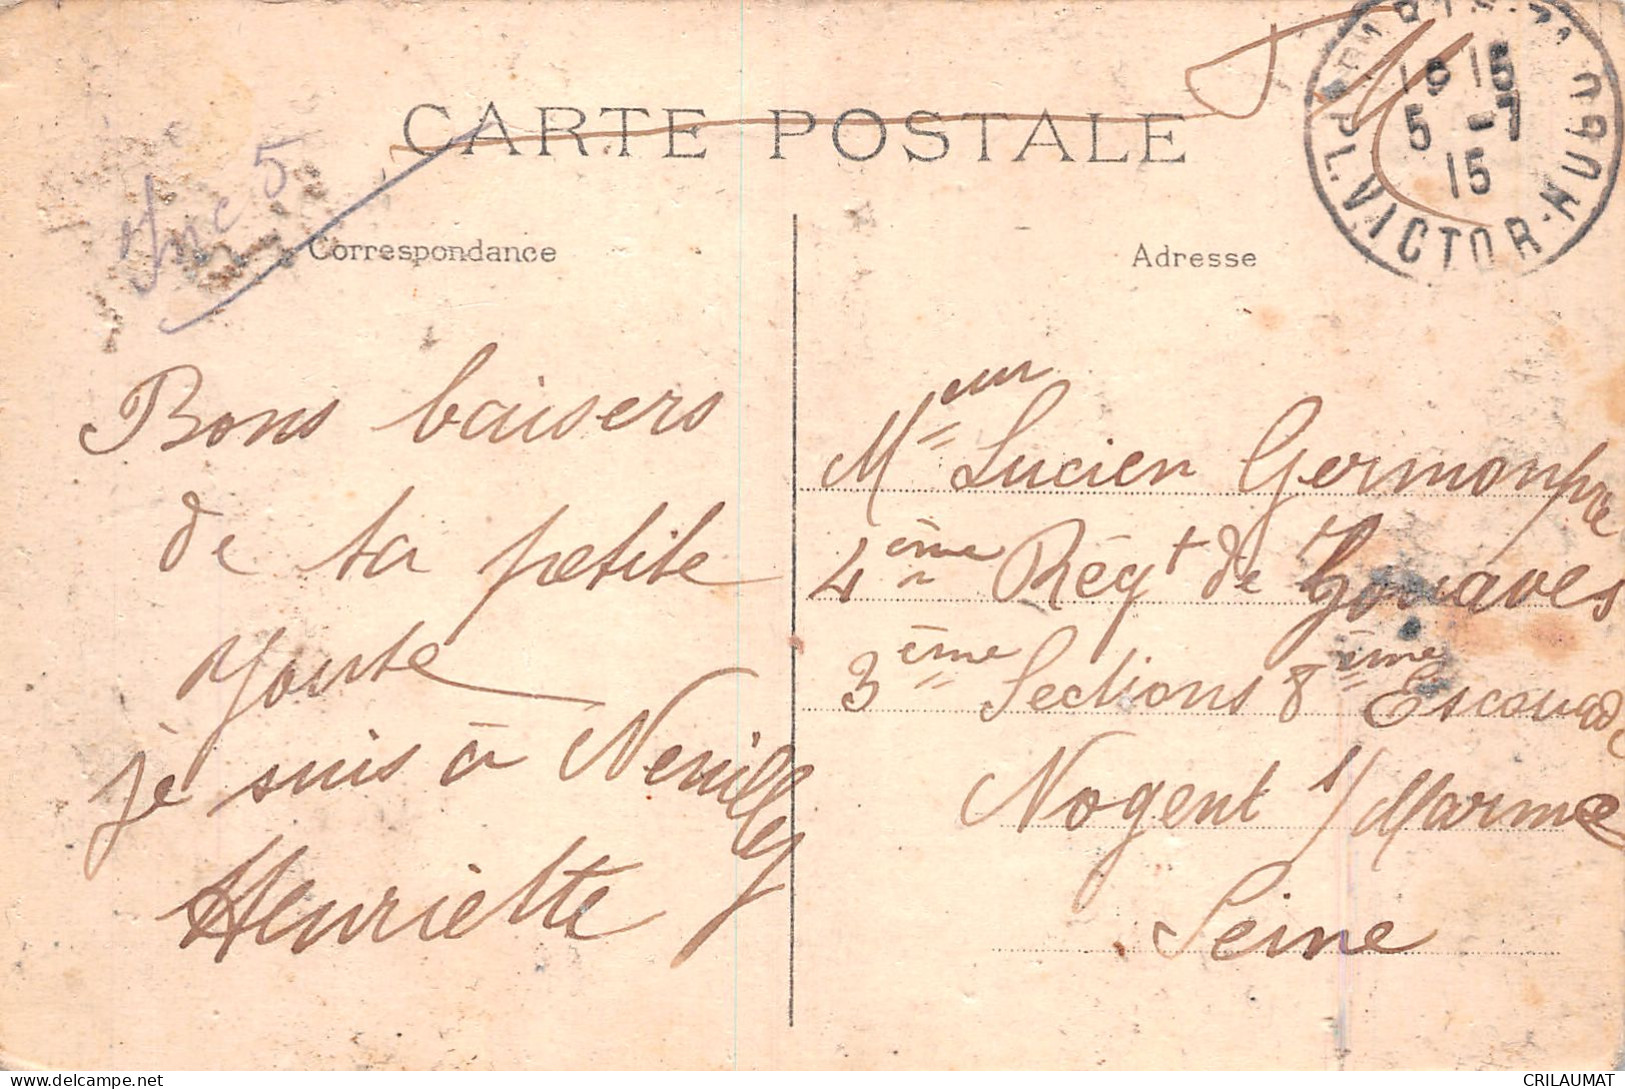 CARTE POSTALE
F M
18 15
5 - 7
15
PL. VICTOR-HUGO
5
Correspondance
Adresse
Bons baisers
de ta petite
je suis à Neuilly
Henriette
Meur Lucien Germonpré
4ème Régt de Zouaves
3ème Sections 8ème Escouade
Nogent s/Marne
Seine
CRILAUMAT